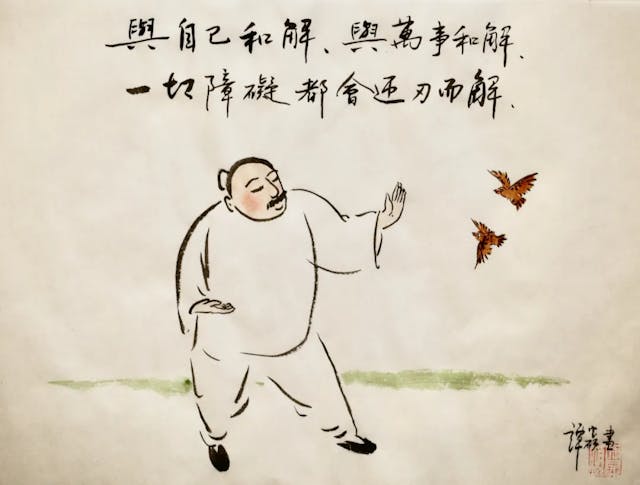 與自己和解、與萬事和解、
一切障礙都會迎刃而解、
譚 畫